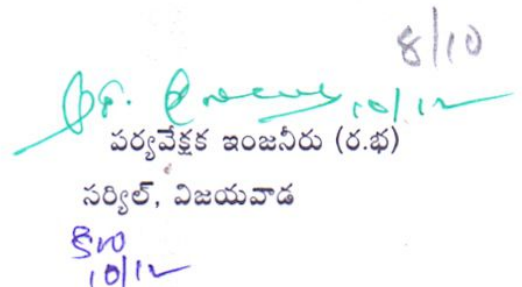 8/10
10/12
పర్యవేక్షక ఇంజనీరు (ర.భ)
సర్కిల్, విజయవాడ
10/12